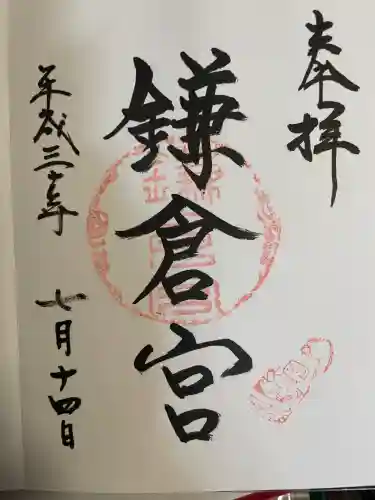 奉拝
鎌倉宮
平成三十年
七月十四日